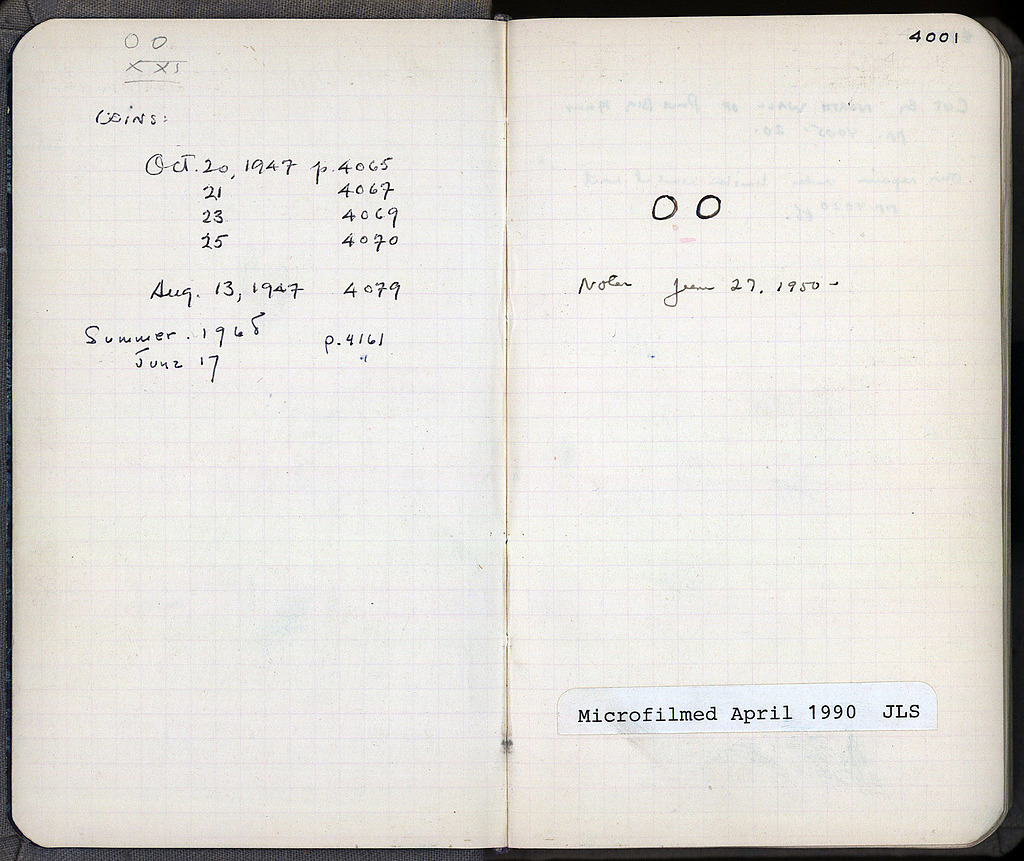 O O
X XS
COINS:
Oct. 20, 1947 p. 4065
21 4067
23 4069
25 4070
Aug. 13, 1947 4079
Summer. 1968 p. 4161
June 17 "
4001
O O
Notes June 27, 1950 -
Microfilmed April 1990 JLS